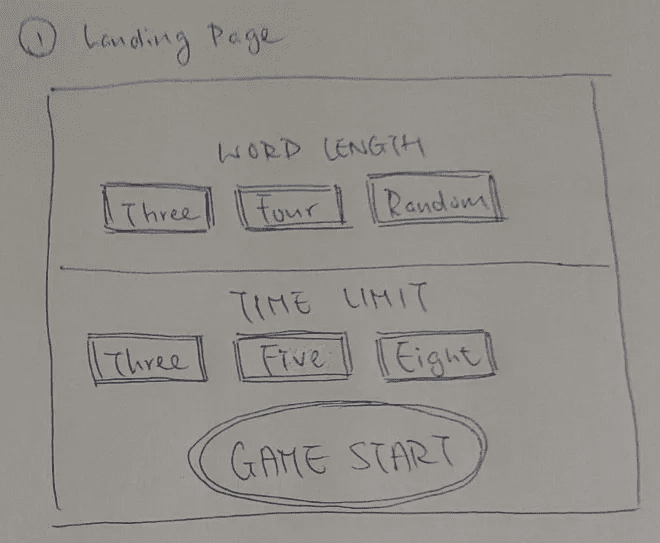 ① Landing Page
WORD LENGTH
Three Four Random
TIME LIMIT
Three Five Eight
GAME START